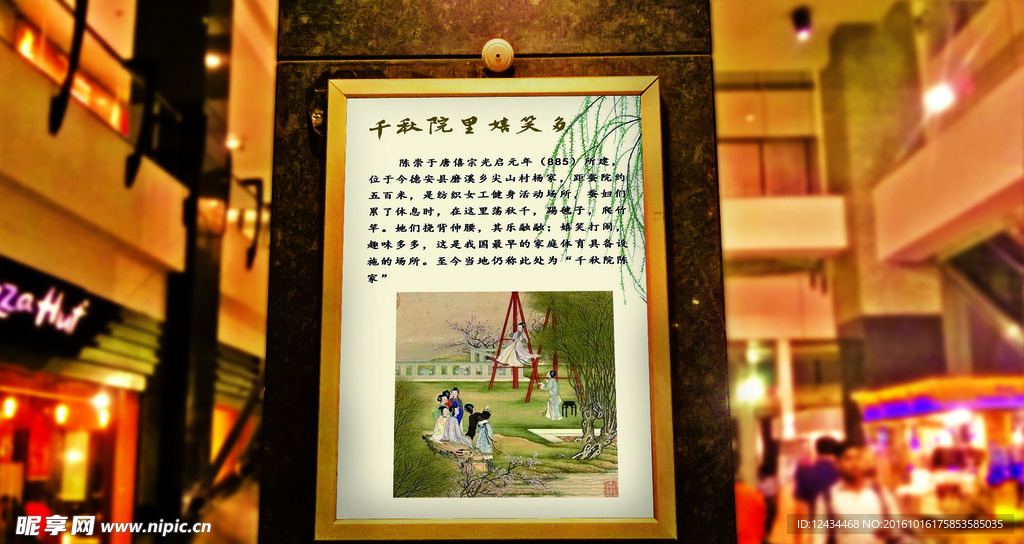 千秋院里嬉笑多
陈崇于唐僖宗光启元年（885）所建，
位于今德安县磨溪乡尖山村杨家，距蚕院约
五百米，是纺织女工健身活动场所，蚕妇们
累了休息时，在这里荡秋千，踢毽子，爬竹
竿。她们挠背伸腰，其乐融融；嬉笑打闹，
趣味多多，这是我国最早的家庭体育具备设
施的场所。至今当地仍称此处为“千秋院陈
家”
zza Hut
昵享网 www.nipic.cn
ID:12434468 NO:20161016175853585035